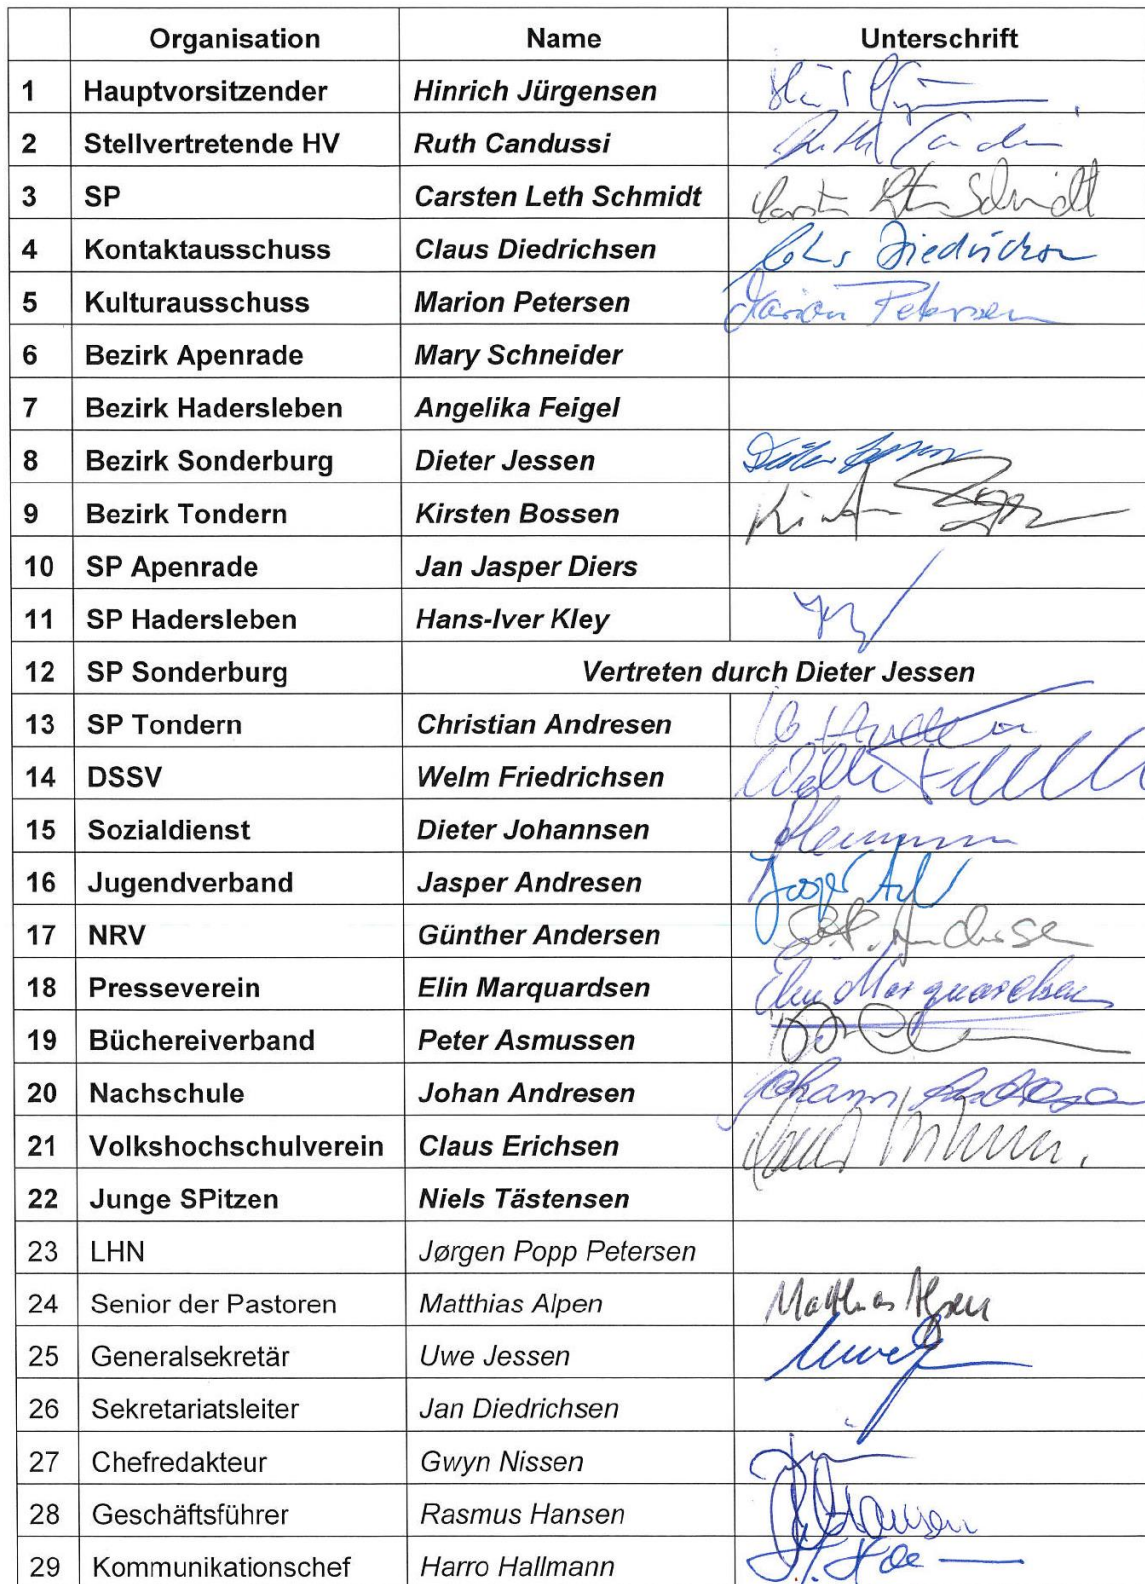 Organisation Name Unterschrift
1 Hauptvorsitzender Hinrich Jürgensen
2 Stellvertretende HV Ruth Candussi
3 SP Carsten Leth Schmidt Carsten Leth Schmidt
4 Kontaktausschuss Claus Diedrichsen Claus Diedrichsen
5 Kulturausschuss Marion Petersen Marion Petersen
6 Bezirk Apenrade Mary Schneider
7 Bezirk Hadersleben Angelika Feigel
8 Bezirk Sonderburg Dieter Jessen Dieter Jessen
9 Bezirk Tondern Kirsten Bossen
10 SP Apenrade Jan Jasper Diers
11 SP Hadersleben Hans-Iver Kley
12 SP Sonderburg Vertreten durch Dieter Jessen
13 SP Tondern Christian Andresen
14 DSSV Welm Friedrichsen
15 Sozialdienst Dieter Johannsen
16 Jugendverband Jasper Andresen
17 NRV Günther Andersen
18 Presseverein Elin Marquardsen Elin Marquardsen
19 Büchereiverband Peter Asmussen
20 Nachschule Johan Andresen
21 Volkshochschulverein Claus Erichsen
22 Junge SPitzen Niels Tästensen
23 LHN Jørgen Popp Petersen
24 Senior der Pastoren Matthias Alpen Matthias Alpen
25 Generalsekretär Uwe Jessen
26 Sekretariatsleiter Jan Diedrichsen
27 Chefredakteur Gwyn Nissen
28 Geschäftsführer Rasmus Hansen
29 Kommunikationschef Harro Hallmann